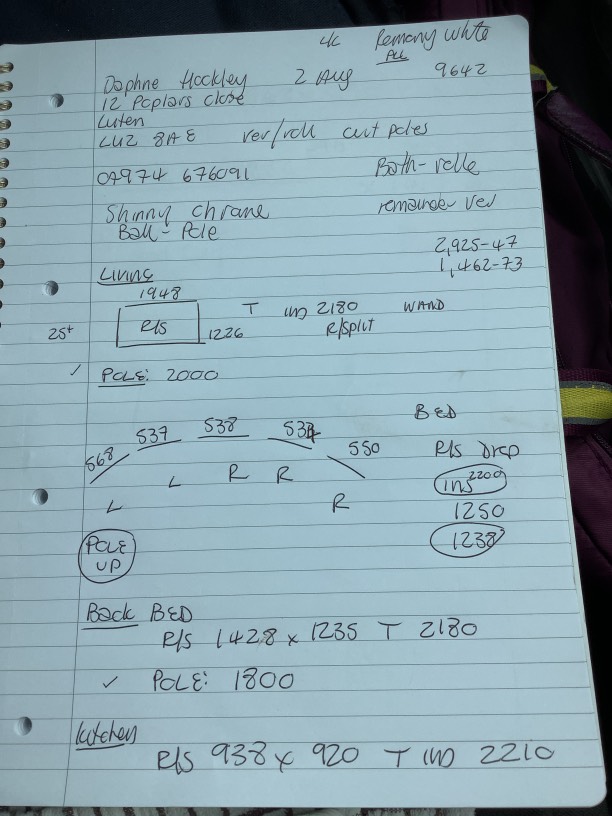 4c Remany White
ALL
Daphne Hockley 2 Aug 9642
12 Poplars Close
Luten
LU2 8AE ver/roll cut poles
07974 676091 Both - rolle
Shinny Chrome remainder ver
Ball - Pole
2,925-47
1,462-73
Living
1948
T IN) 2180 WAND
R/S
25+ 1226 R/Split
✓ POLE: 2000
BED
568 537 538 534 550 R/S Drop
L L R R R
IN) 2200
1250
POLE UP 1238
Back BED
R/S 1428 x 1235 T 2180
✓ POLE: 1800
Kitchen
R/S 938 x 920 T IN) 2210